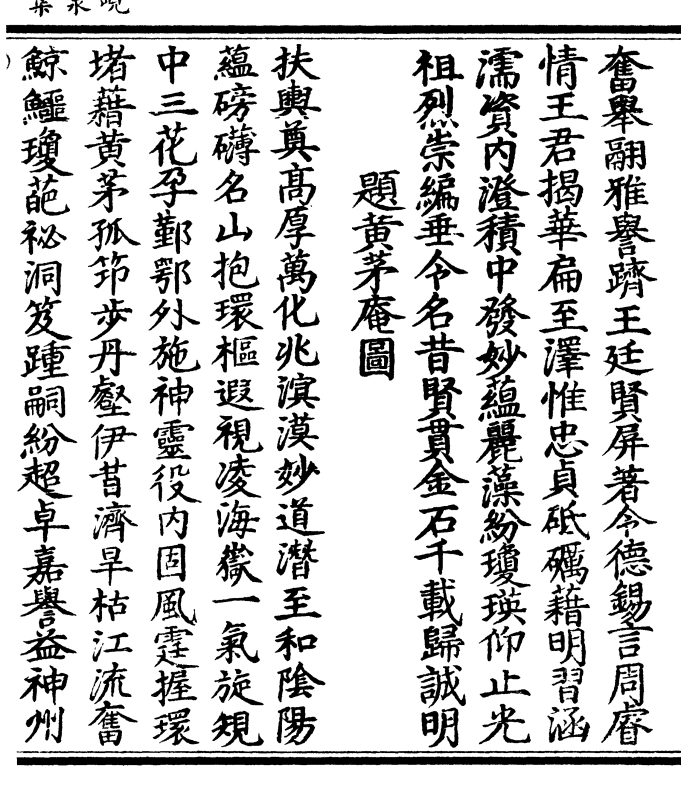 峴泉集
奮舉翮雅譽躋王廷賢屏著令德錫言周睿
情王君揭華扁至澤惟忠貞砥礪藉明習涵
濡資內澄積中發妙蘊麗藻紛瓊瑛仰止光
祖烈崇編垂令名昔賢貫金石千載歸誠明
題黃茅庵圖
扶輿奠高厚萬化兆溟漠妙道潛至和陰陽
蘊磅礴名山抱環樞遐視凌海嶽一氣旋規
中三花孕鄞鄂外施神靈役內固風霆握環
堵藉黃茅孤笻步丹壑伊昔濟旱枯江流奮
鯨鱷瓊葩祕洞笈踵嗣紛超卓嘉譽益神州